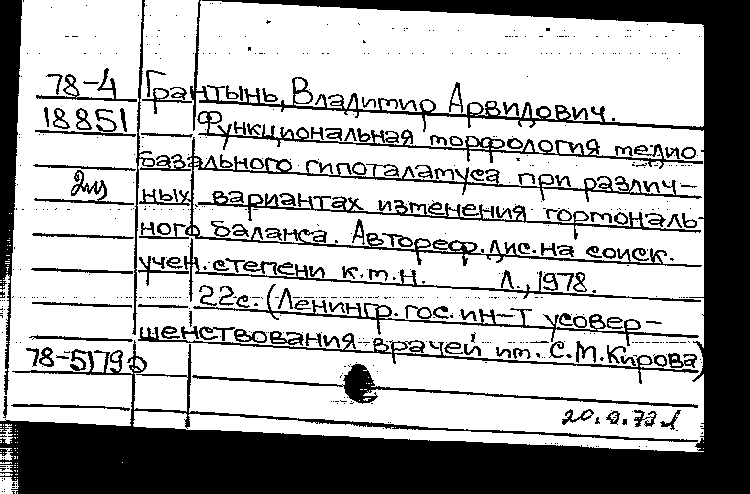 78-4 Грантынь, Владимир Арвидович.
18851 Функциональная морфология медио-
базального гипоталамуса при различ-
2 ных вариантах изменения гормональ-
ного баланса. Автореф. дис. на соиск.
учен. степени к.м.н. Л., 1978.
22с. (Ленингр. гос. ин-т усовер-
шенствования врачей им. С.М. Кирова)
78-51790